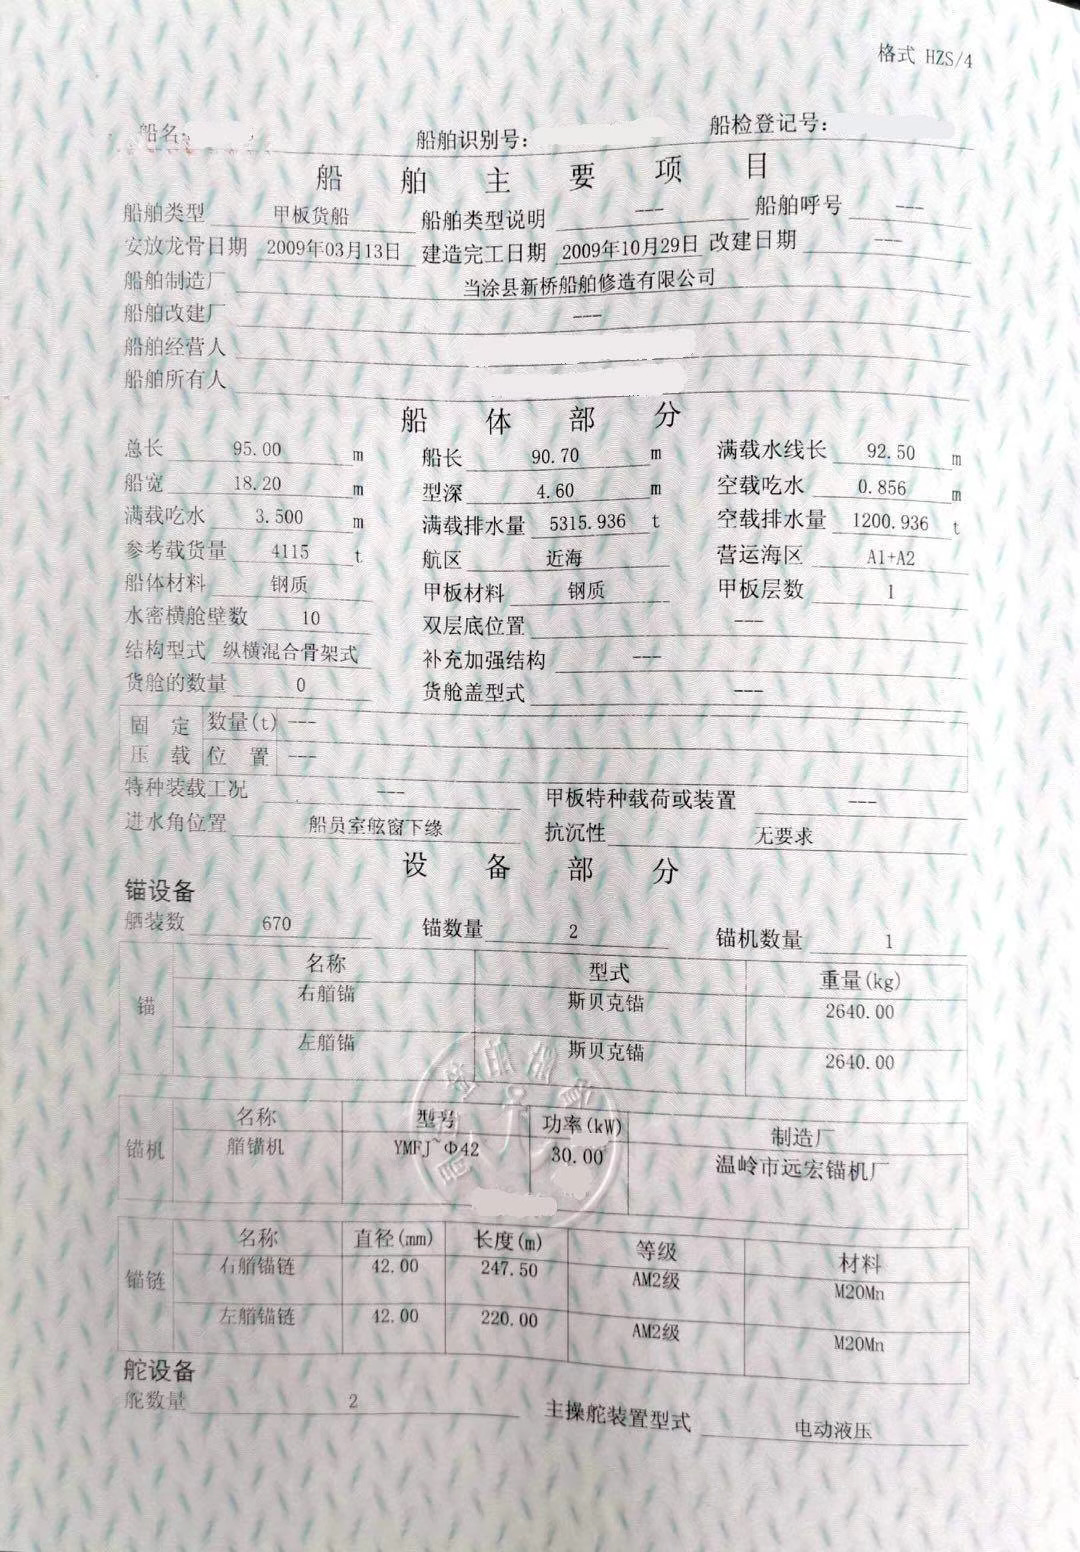 格式 HZS/4
船名: 船舶识别号: 船检登记号:
船舶主要项目
船舶类型 甲板货船 船舶类型说明 --- 船舶呼号 ---
安放龙骨日期 2009年03月13日 建造完工日期 2009年10月29日 改建日期 ---
船舶制造厂 当涂县新桥船舶修造有限公司
船舶改建厂 ---
船舶经营人
船舶所有人
船体部分
总长 95.00 m 船长 90.70 m 满载水线长 92.50 m
船宽 18.20 m 型深 4.60 m 空载吃水 0.856 m
满载吃水 3.500 m 满载排水量 5315.936 t 空载排水量 1200.936 t
参考载货量 4115 t 航区 近海 营运海区 A1+A2
船体材料 钢质 甲板材料 钢质 甲板层数 1
水密横舱壁数 10 双层底位置 ---
结构型式 纵横混合骨架式 补充加强结构 ---
货舱的数量 0 货舱盖型式 ---
固定 数量(t) ---
压载 位置 ---
特种装载工况 --- 甲板特种载荷或装置 ---
进水角位置 船员室舷窗下缘 抗沉性 无要求
设备部分
锚设备
舾装数 670 锚数量 2 锚机数量 1
名称 型式 重量(kg)
锚 右艏锚 斯贝克锚 2640.00
左艏锚 斯贝克锚 2640.00
名称 型号 功率(kW) 制造厂
锚机 艏锚机 YMFJ~Φ42 30.00 温岭市远宏锚机厂
名称 直径(mm) 长度(m) 等级 材料
锚链 右艏锚链 42.00 247.50 AM2级 M20Mn
左艏锚链 42.00 220.00 AM2级 M20Mn
舵设备
舵数量 2 主操舵装置型式 电动液压